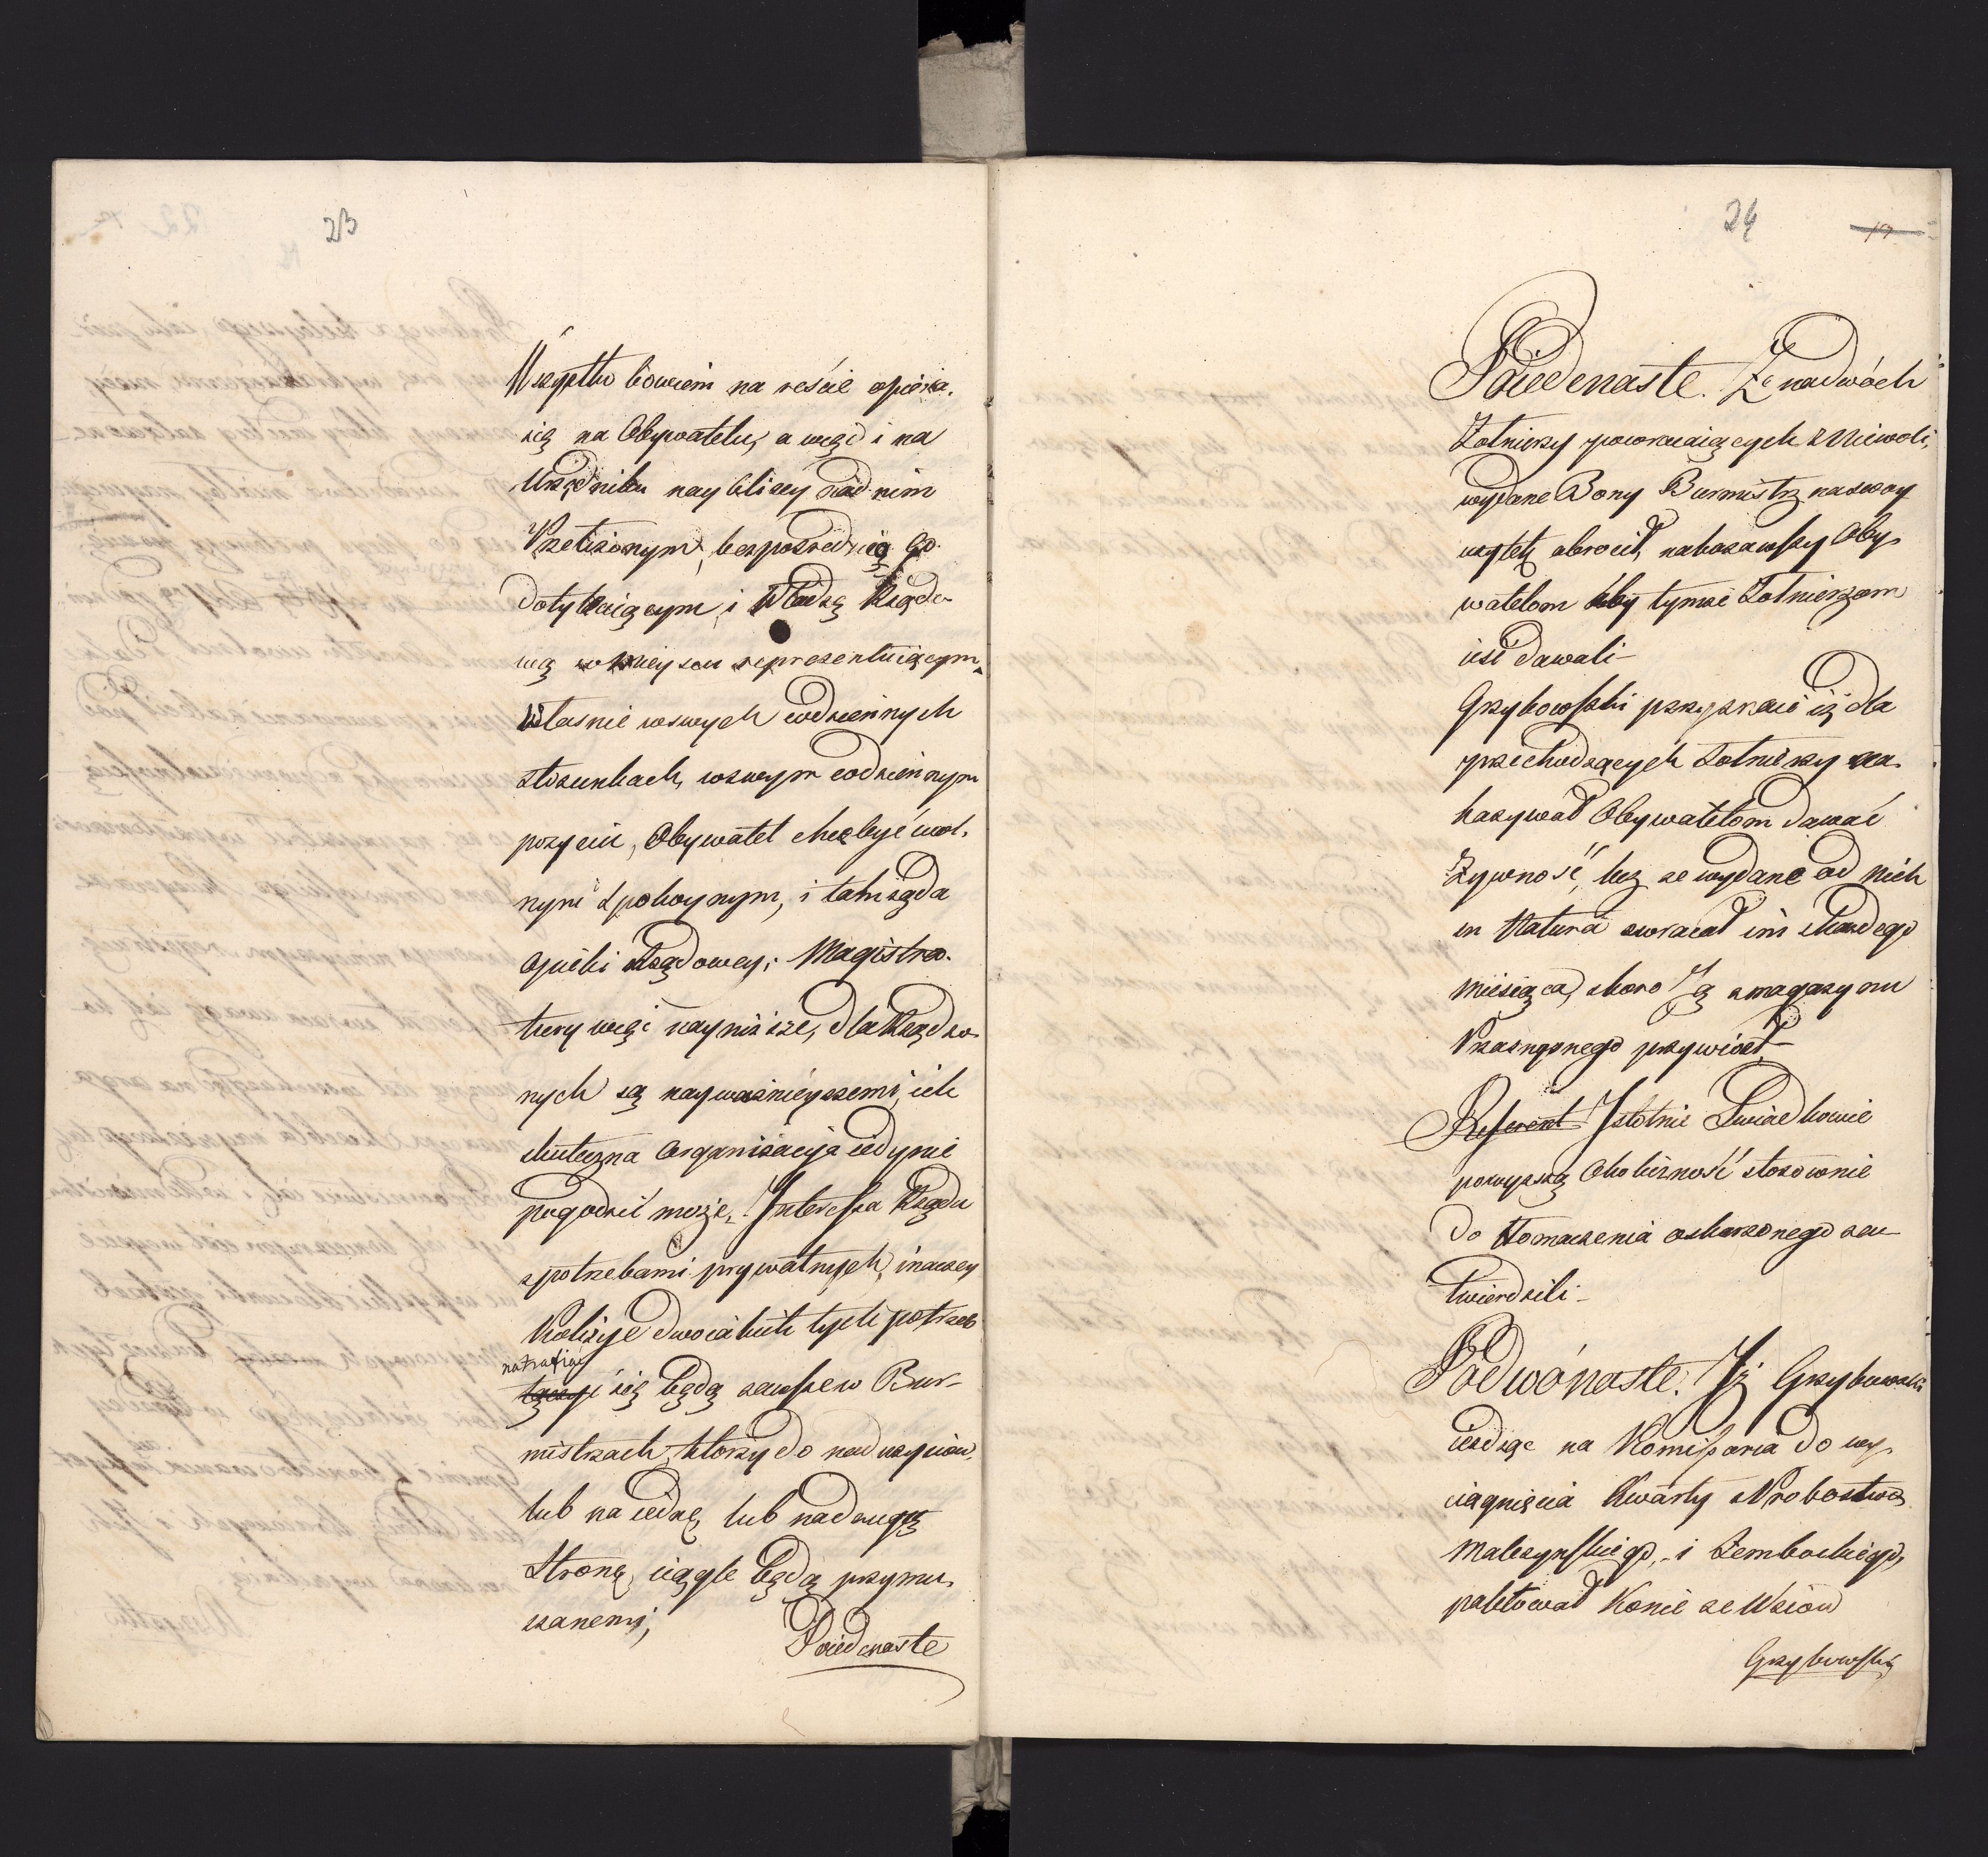 23
Wszystko bowiem na reście opiera
się na Obywatelu, a więc i na
Urzędniku naybliżey nad nim
Przełożonym, bezpośrednię go
dotykaiącym i Władzę Rządo-
wą w mieyscu reprezentuiącym,
Własnie w swych codziennych
stosunkach, w swym codziennym
pożyciu, Obywatel chce być wol-
nym spokoynym, i tak żąda
Opieki Rządowey; Magistra-
tury więc nayniższe, dla Rządzo-
nych są nayważnieyszemi, ich
skuteczna Organizacyja iedynie
pogodzić może, Interessa Rządu
z potrzebami prywatnych, inaczey
Kolizye dwoiakich tych potrzeb
natrafiać
się będą zawsze w Bur-
mistrzach, którzy do nadużyciów,
lub na iednę, lub na drugą
Stronę, ciągle będą przymu-
szanemi,
Pojedenaste
24
Pojedenaste. Że na dwóch
Żołnierzy powracaiących z Niewoli,
wydane Bony Burmistrz na swoy
użytek obrocił, nakazawszy Oby-
watelom aby tymże Żołnierzom
ieść dawali –
Grzybowski przyznaie iż dla
przechodzących Żołnierzy na-
kazywał Obywatelom dawać
Żywność, lecz że wydane od nich
in Natura zwracał im każdego
Miesiąca, skoro Ją z magazynu
Przasnyskiego przywiozł –
Referent Istotnie Swiadkowie
powyższą Okoliczność stosownie
do tłomaczenia oskarżonego za-
twierdzili –
Podwónaste. Iż Grzybowski
ieżdżąc na Kommissarza do wy-
ciągnięcia Kwarty z Probostwa
Malczynskiego, i Zembockiego,
paletował Konie ze Wsiów
Grzybowski